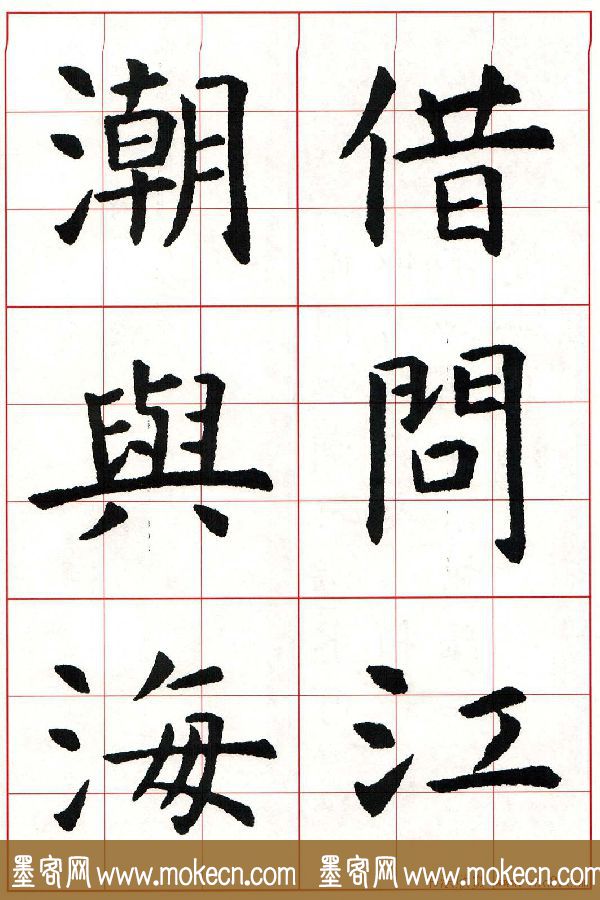 借問江
潮與海
墨客网 www.mokecn.com 墨客网 www.mokecn.com